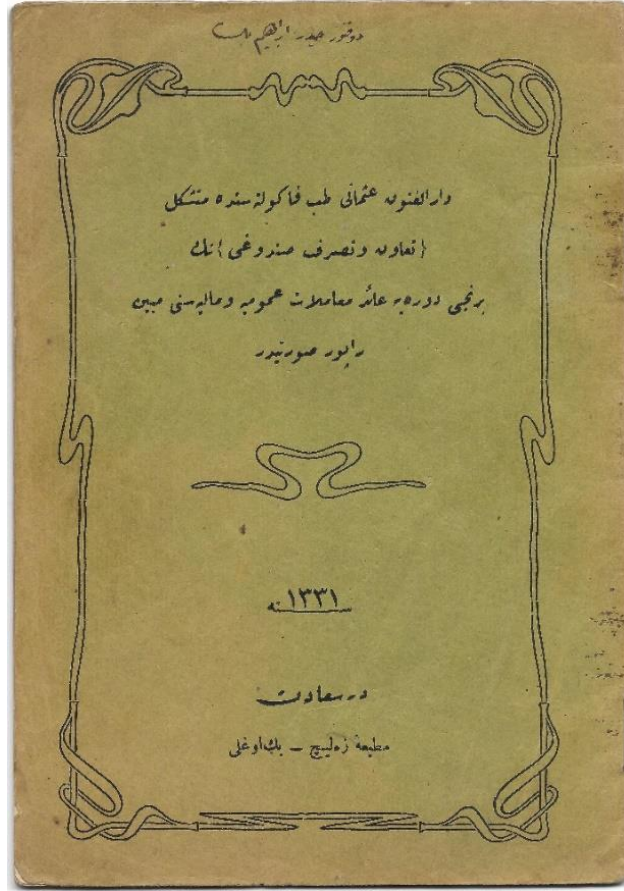 دوقتور حیدر ابراهیم بك
دارالفنون عثمانی طب فاكولته سنده متشكل
(تعاون وتصرف صندوغی) نك
برنجی دوره یه عائد معاملات عمومیه ومالیه سنی مبین
راپور صورتیدر
سنه ١٣٣١
درسعادت
مطبعۀ زه لیچ – بك اوغلی